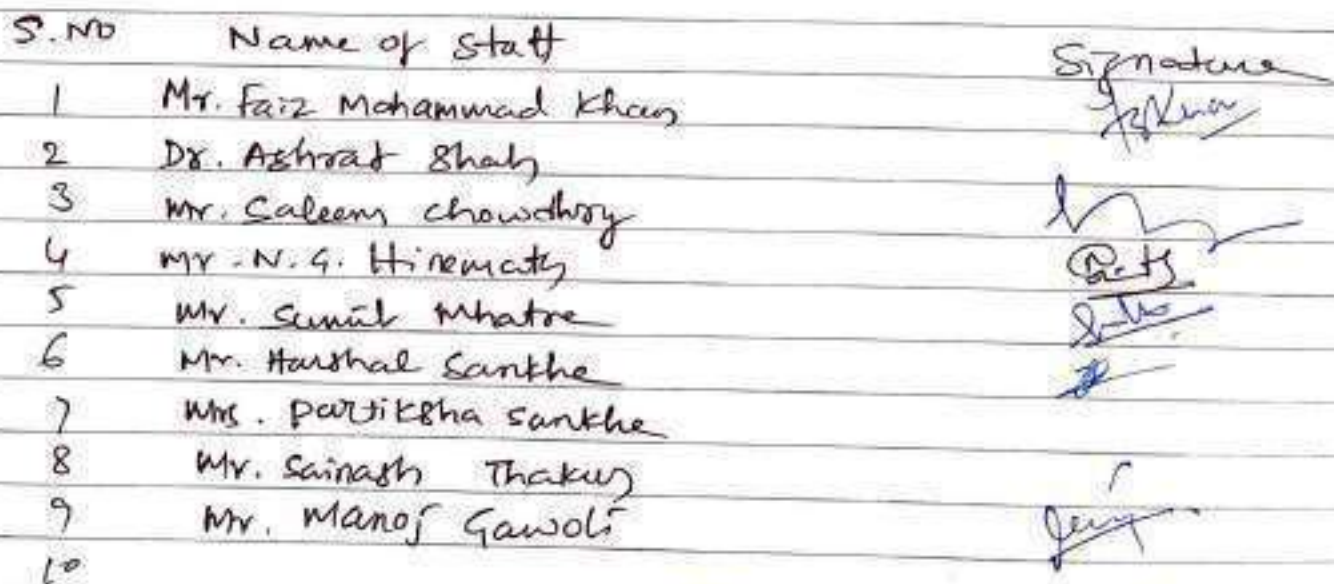 S.NO Name of Staff Signature
1 Mr. Faiz Mohammad Khan
2 Dr. Ashraf Shah
3 Mr. Saleem Chowdhry
4 Mr. N.G. Hiremath
5 Mr. Sunil Mhatre
6 Mr. Harshal Sankhe
7 Mrs. Partiksha Sankhe
8 Mr. Sainash Thakur
9 Mr. Manoj Gawoli
10